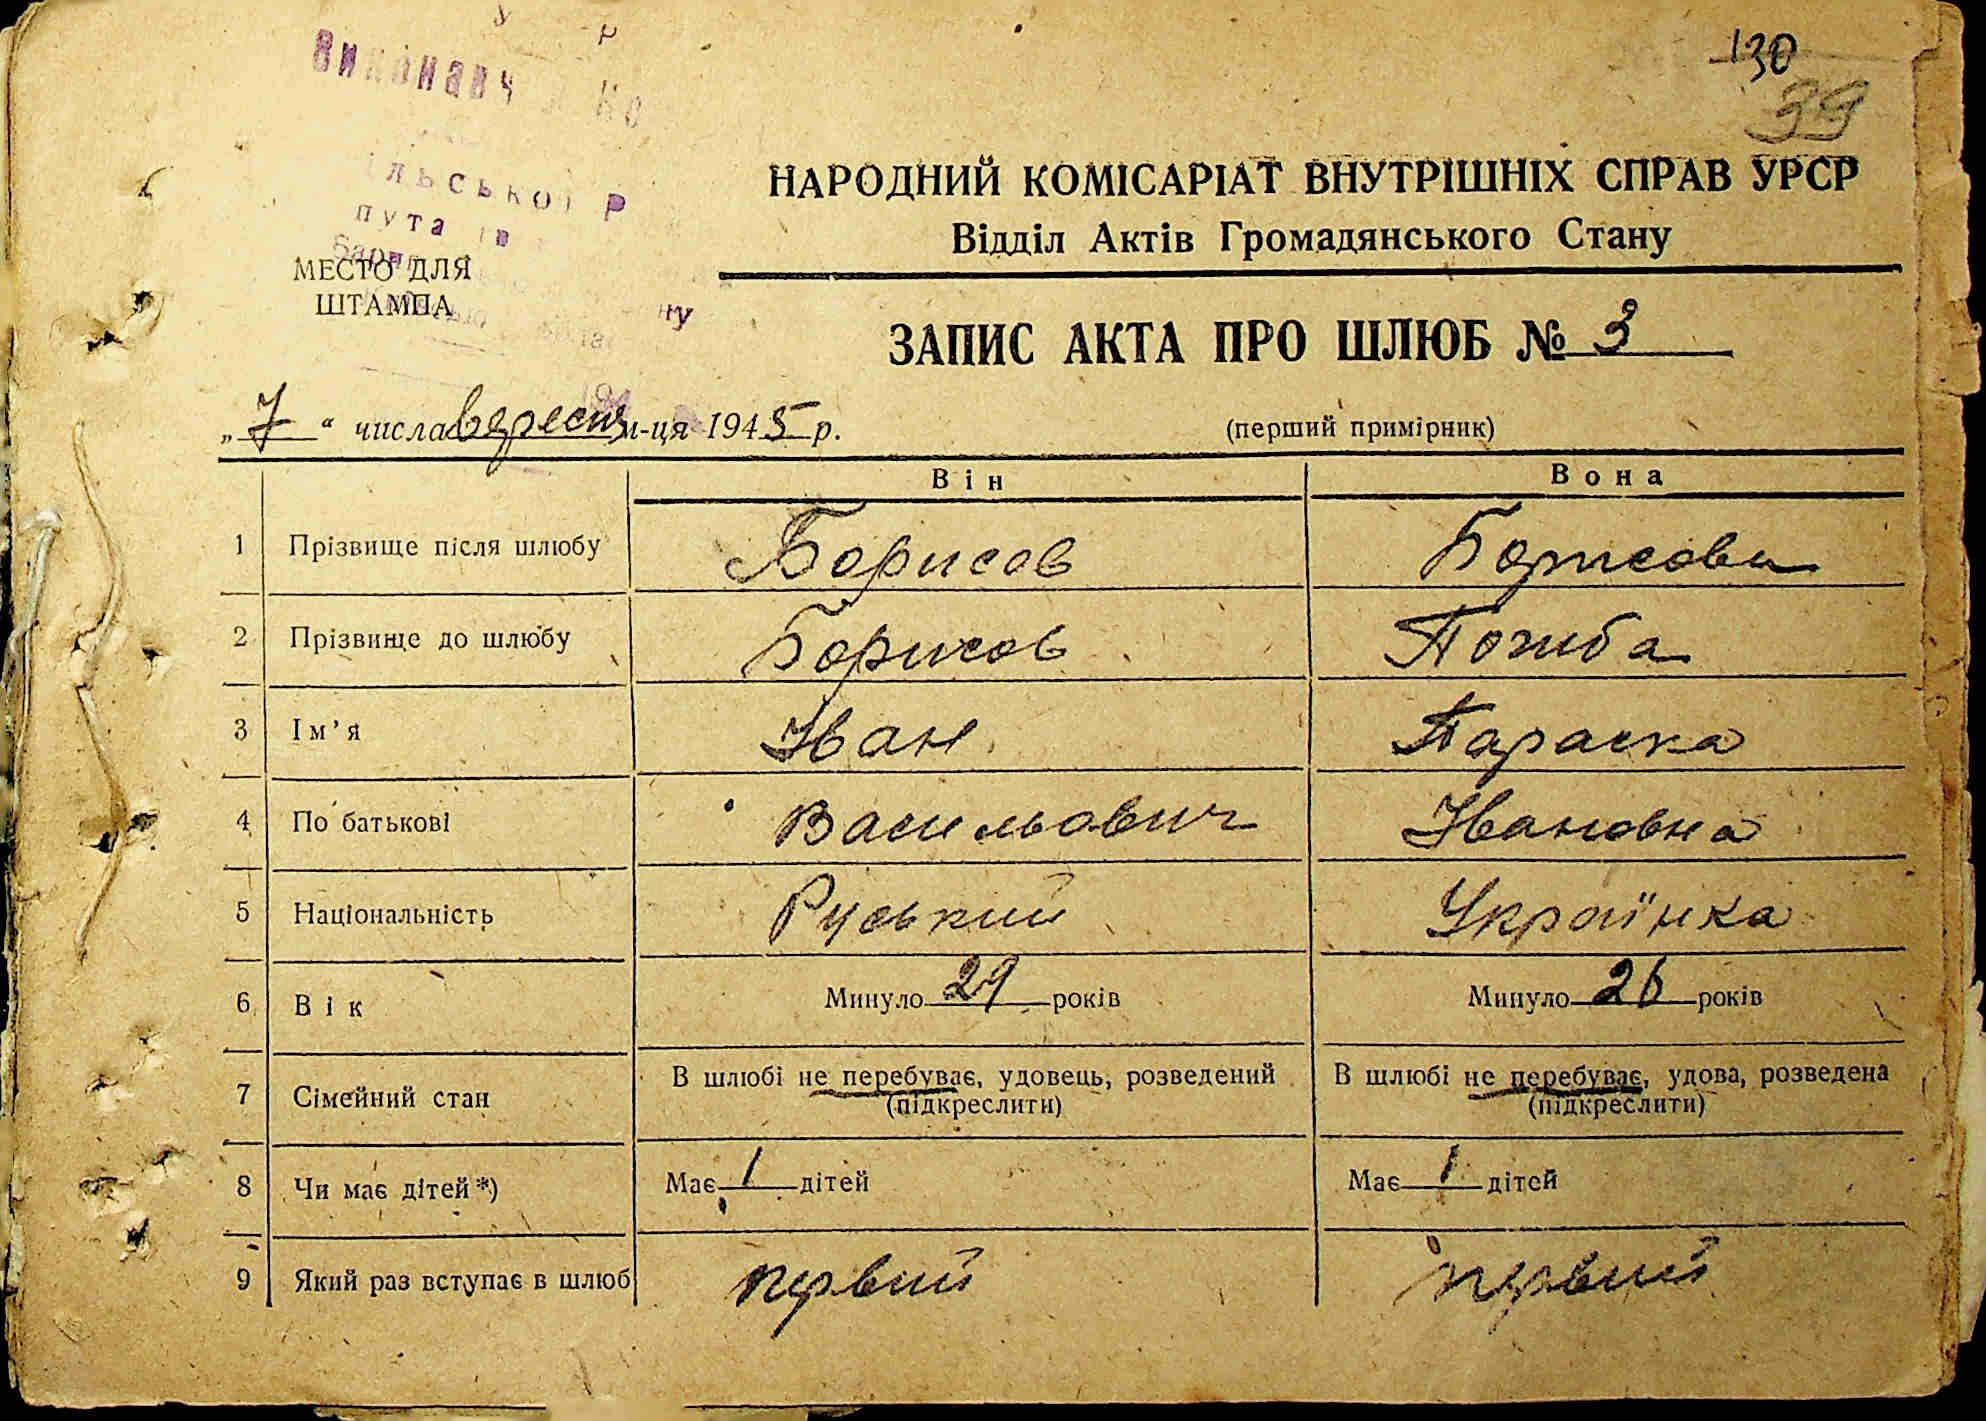 130
39
НАРОДНИЙ КОМІСАРІАТ ВНУТРІШНІХ СПРАВ УРСР
Відділ Актів Громадянського Стану
МЕСТО ДЛЯ
ШТАМПА
ЗАПИС АКТА ПРО ШЛЮБ № 3
„7“ числа вересня м-ця 1945 р.
(перший примірник)
Він Вона
1 Прізвище після шлюбу Борисов Борисова
2 Прізвище до шлюбу Борисов
3 Ім’я Іван Параска
4 По батькові Васильович Івановна
5 Національність Руський Українка
6 Вік Минуло 29 років Минуло 26 років
7 Сімейний стан В шлюбі не перебуває, удовець, розведений В шлюбі не перебуває, удова, розведена
(підкреслити) (підкреслити)
8 Чи має дітей*) Має 1 дітей Має 1 дітей
9 Який раз вступає в шлюб первий первий